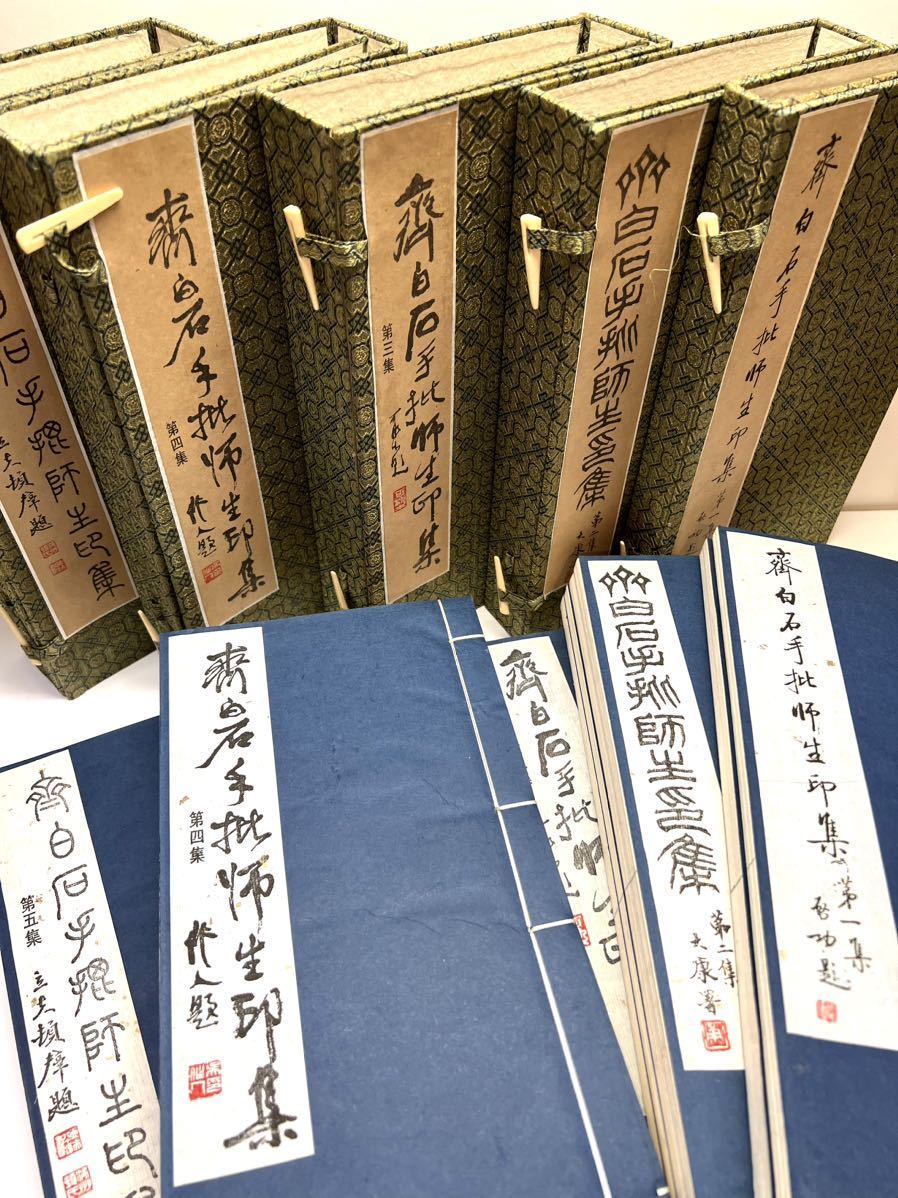 齊白石手批師生印集
第一集
齊白石手批師生印集
第二集
齊白石手批師生印集
第三集
齊白石手批師生印集
第四集
作人題
白石手批師生印集
齊白石手批师生印集
第一集
啓功題
齊白石手批師生印集
第二集
大康署
齊白石手批師生
齊白石手批師生印集
第四集
作人題
齊白石手批師生印
第五集